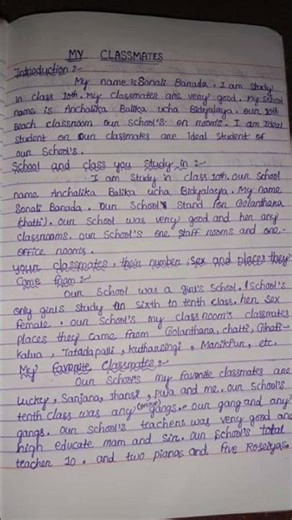 MY CLASSMATES
Introduction :-
My name is Sonali Banada. I am Study
in class 10th. my classmates are very good. My School
name is Anchalika Balika ucha Bidyalaya. our 10th
each classroom our School's on rooms. I am Ideal
Student on our classmates are Ideal Student of
our School's.
School and class you Study in :-
I am Study in class 10th. our School
name Anchalika Balika ucha Bidyalaya. My name
Sonali Banada. Our School's Stand for Golanthana
(hatti). our School was very good and hen any
classrooms. our School's one Staff rooms and one
office rooms.
your classmates, their number, Sex and places they
Come from :-
Our School was a girl's School. School's
only girls Study in Sixth to tenth class. her Sex
female. our School's my classroom's classmates
places they came from Golanthana, chatti,
kalua, Tatadapalli, kuthansingi, Manikpun, etc.
My Favorite Classmates :-
Our School's my favorite classmates are
Luckey, Sanjana, and me. our School's
tenth class was any gangs. our gang and any
gangs. our School's teachers was very good and
high educate mam and Sir. our School's total
teacher 10. and two pianas and five